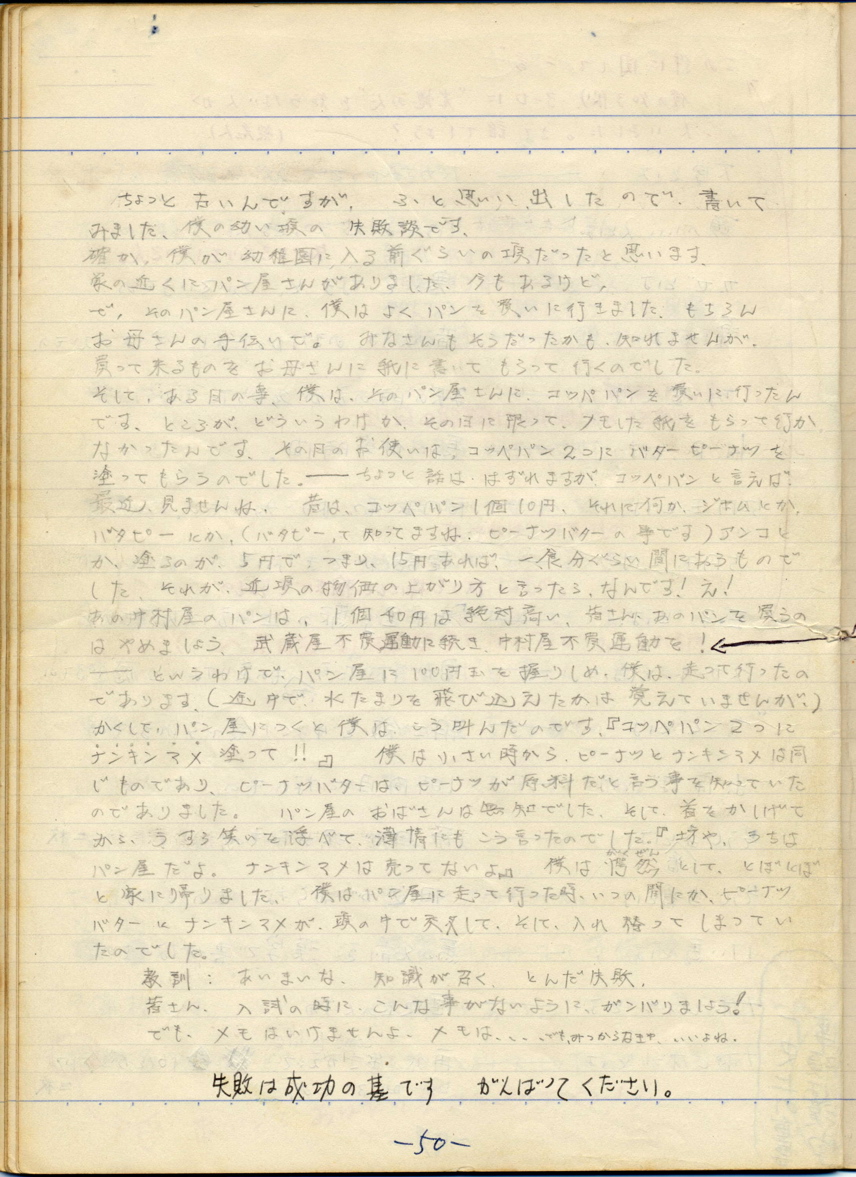 ちょっと古いんですが、ふいと思い出したので、書いて
みました、僕の幼い頃の失敗談です、
確か、僕が幼稚園に入る前ぐらいの頃だったと思います、
家の近くにパン屋さんがありました、今もあるけど、
で、そのパン屋さんに、僕はよくパンを買いに行きました、もちろん
お母さんの手伝いで。みなさんもそうだったかも、知れませんが、
買って来るものをお母さんに紙に書いてもらって行くのでした。
そして、ある日の事、僕は、そのパン屋さんに、コッペパンを買いに行ったん
です、ところが、どういうわけか、その日に限って、メモした紙をもらって行か
なかったんです、その日のお使いは、コッペパン2つにバターピーナツを
塗ってもらうのでした。――ちょっと話は、はずれますが、コッペパンと言えば、
最近、見ませんね、昔は、コッペパン1個10円、それに何か、ジャムとか、
バタピーとか、(バタピーって知ってますね、ピーナツバターの事です)アンコと
か、塗るのが、5円で、つまり、15円あれば、一食分ぐらい間にあうもので
した、それが、近頃の物価の上がり方と言ったら、なんです!え!
あの中村屋のパンは、1個40円は絶対高い、皆さん、あのパンを買うの
はやめましょう、武蔵屋不買運動に続き、中村屋不買運動を!
――というわけで、パン屋に100円玉を握りしめ、僕は、走って行ったの
であります、(途中で、水たまりを飛び込えたかは覚えていませんが、)
かくして、パン屋につくと僕は、こう叫んだのです、『コッペパン2つに
ナンキンマメ塗って!!』 僕は小さい時から、ピーナツとナンキンマメは同
じものであり、ピーナツバターは、ピーナツが原料だと言う事を知っていた
のでありました。パン屋のおばさんは無知でした、そして、首をかしげて
から、うすら笑いを浮べて、薄情にもこう言ったのでした。『坊や、うちは
パン屋だよ。ナンキンマメは売ってないよ』 僕は愕然として、とぼとぼ
と家に帰りました、僕はパン屋に走って行った時、いつの間にか、ピーナツ
バターとナンキンマメが、頭の中で交差して、そして、入れ替ってしまってい
たのでした。
教訓:あいまいな、知識が招く、とんだ失敗、
皆さん、入試の時に、こんな事がないように、ガンバリましょう!
でも、メモはいけませんよ、メモは、、、でも、みつからなきゃ、いいよね。
失敗は成功の基です がんばってください。
-50-